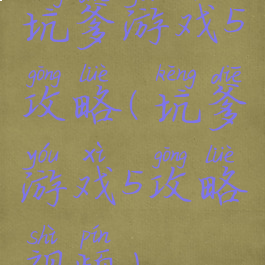 坑爹游戏5
gōng lüè kēng diē
攻略(坑爹
yóu xì gōng lüè
游戏5攻略
shì pín
视频)